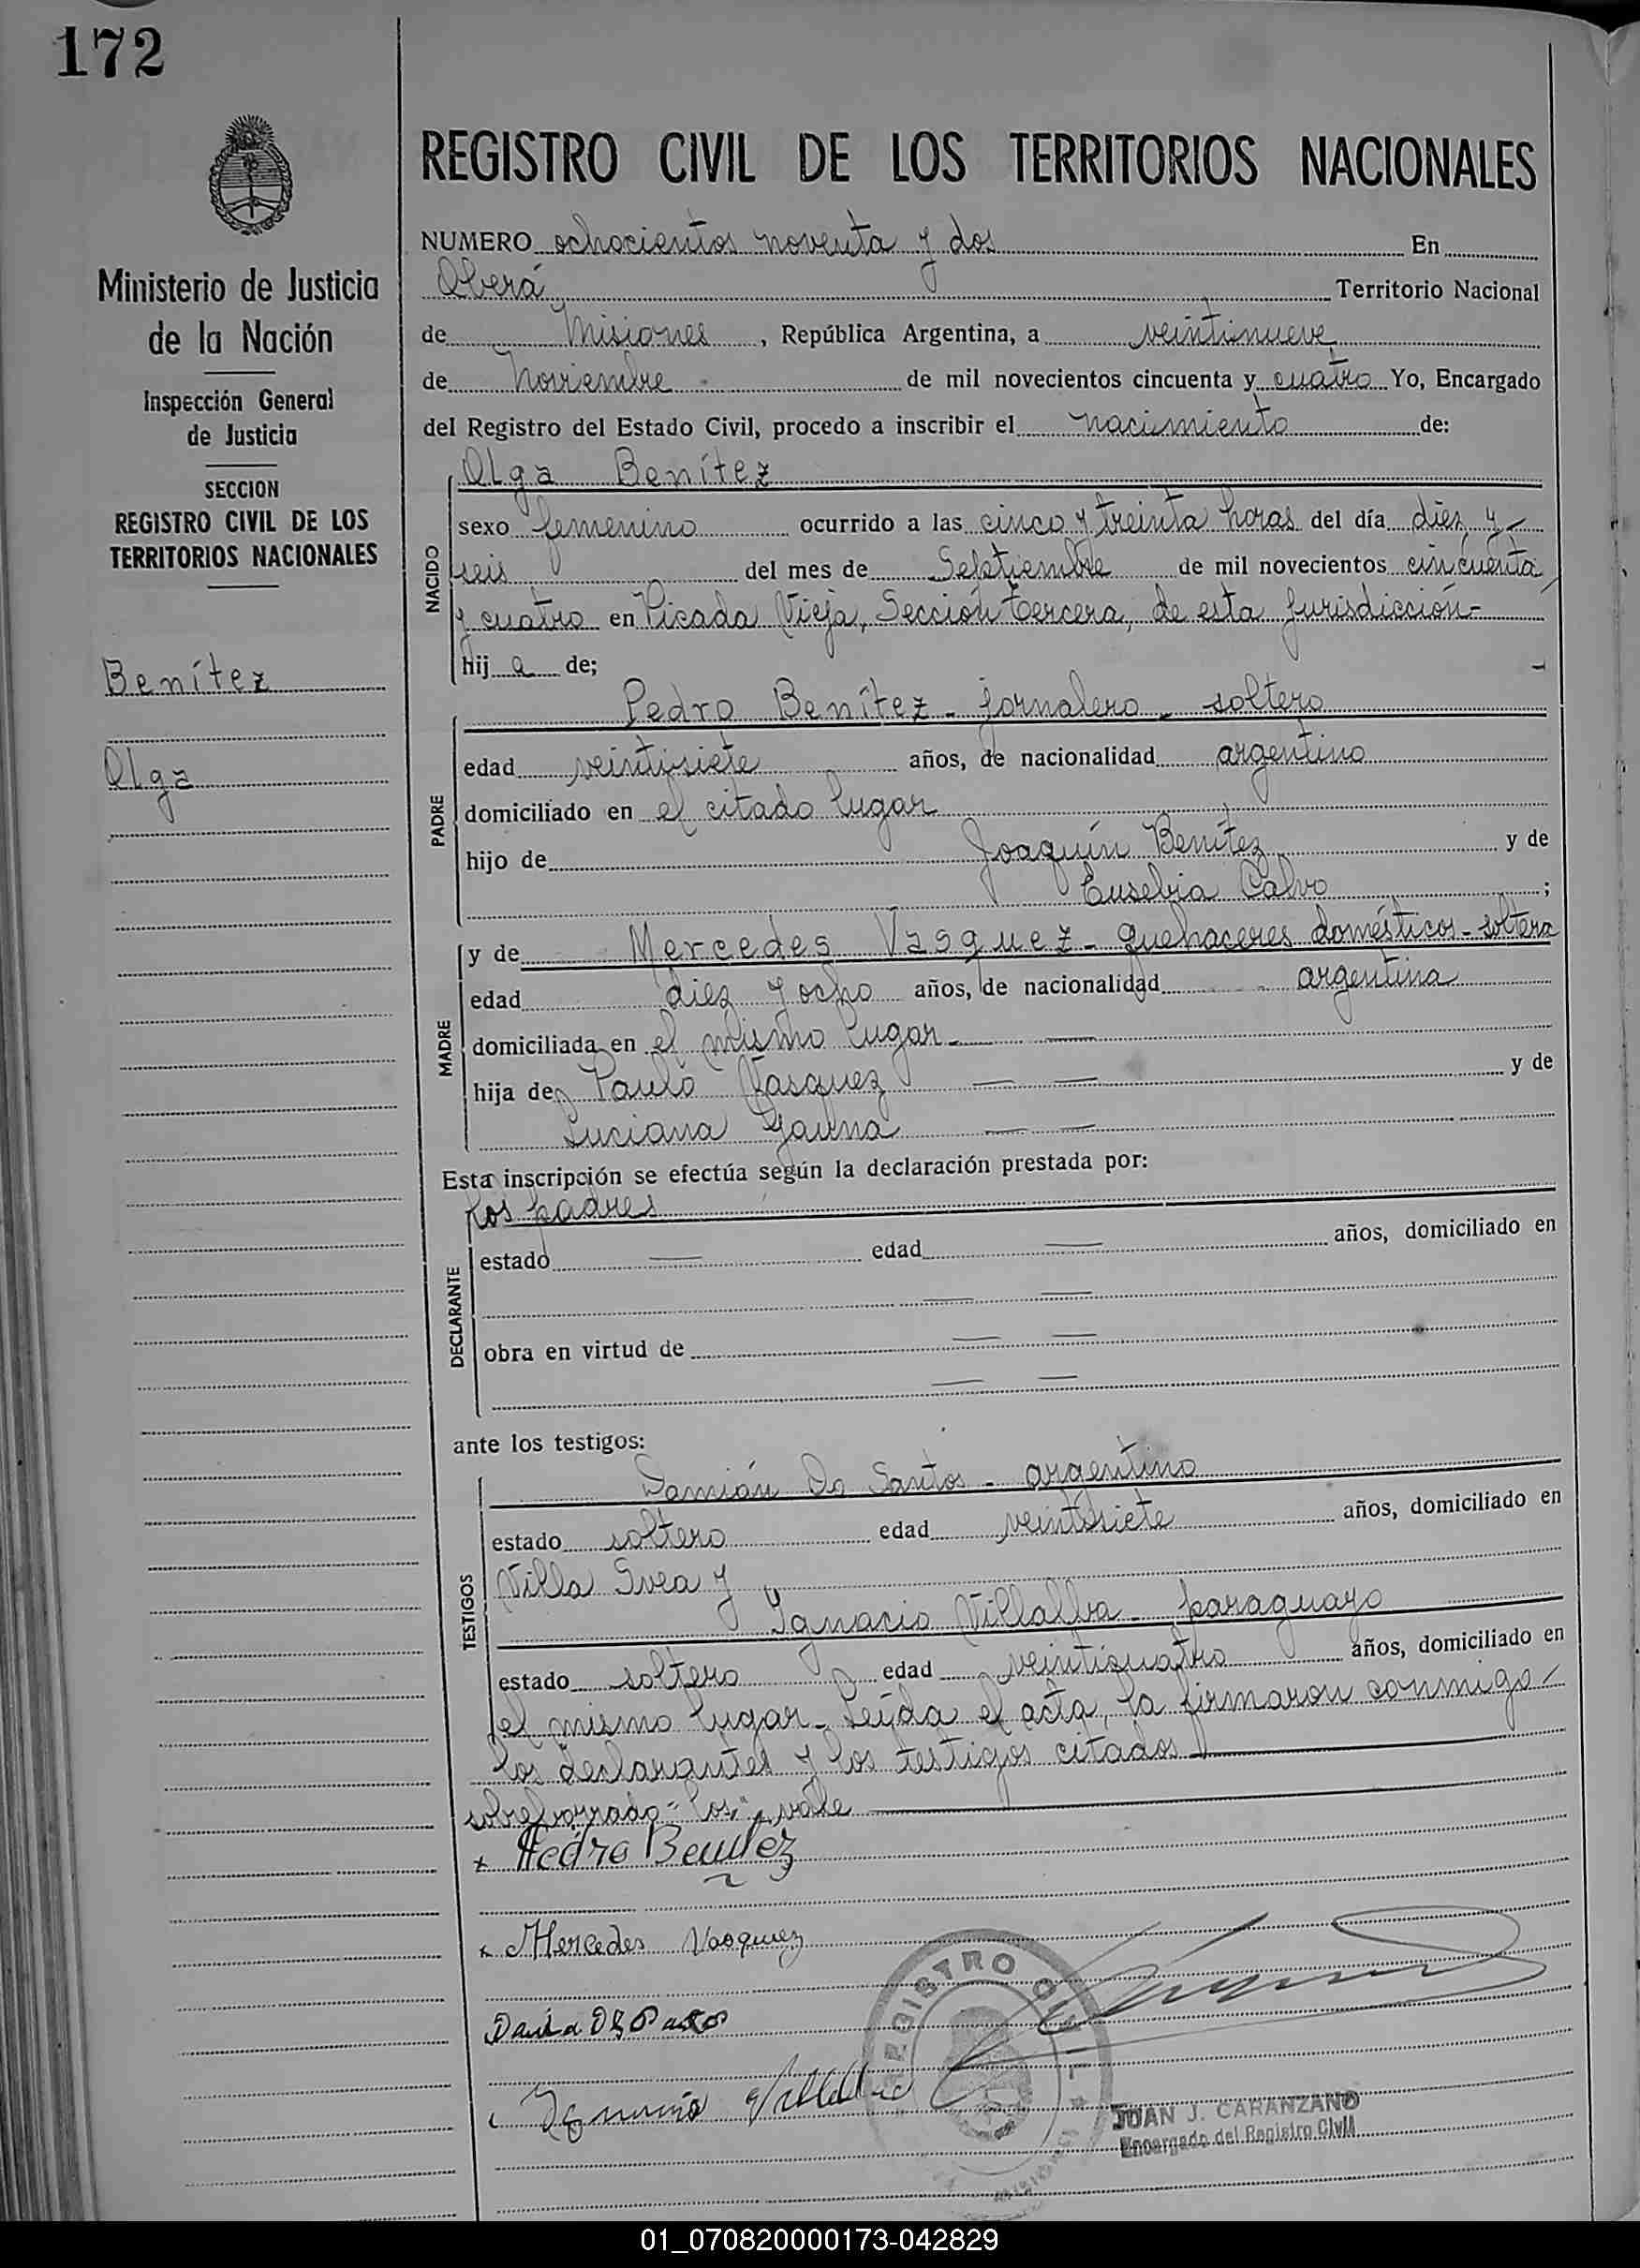 172
Ministerio de Justicia
de la Nación
Inspección General
de Justicia
SECCION
REGISTRO CIVIL DE LOS
TERRITORIOS NACIONALES
Benítez
Olga
REGISTRO CIVIL DE LOS TERRITORIOS NACIONALES
NUMERO ochocientos noventa y dos En
Oberá Territorio Nacional
de Misiones, República Argentina, a veintinueve
de Noviembre - de mil novecientos cincuenta y cuatro Yo, Encargado
del Registro del Estado Civil, procedo a inscribir el nacimiento de:
NACIDO
Olga Benítez
sexo femenino ocurrido a las cinco y treinta horas del día diez y
seis del mes de Septiembre de mil novecientos cincuenta
y cuatro en Picada Vieja, Sección tercera, de esta Jurisdicción-
hija de;
PADRE
Pedro Benítez - jornalero - soltero
edad veintisiete años, de nacionalidad argentino
domiciliado en el citado lugar
hijo de Joaquín Benítez y de
Eusebia Calvo ;
MADRE
y de Mercedes Vasquez - quehaceres domésticos - soltera
edad diez y ocho años, de nacionalidad argentina
domiciliada en el mismo lugar -
hija de Paulo Vasquez y de
Luciana Gauna
Esta inscripción se efectúa según la declaración prestada por:
DECLARANTE
los padres
estado edad años, domiciliado en
obra en virtud de
ante los testigos:
TESTIGOS
Damián Do Santos - argentino
estado soltero edad veintisiete años, domiciliado en
Villa Svea y
Ignacio Villalba - paraguayo
estado soltero edad veinticuatro años, domiciliado en
el mismo lugar - Leída el acta, la firmaron conmigo
los declarantes y los testigos citados
sobreborrado "los", vale
x Pedro Benitez
x Mercedes Vasquez
REGISTRO CIVIL
MISIONES
JUAN J. CARANZANO
Encargado del Registro Civil
01_070820000173-042829